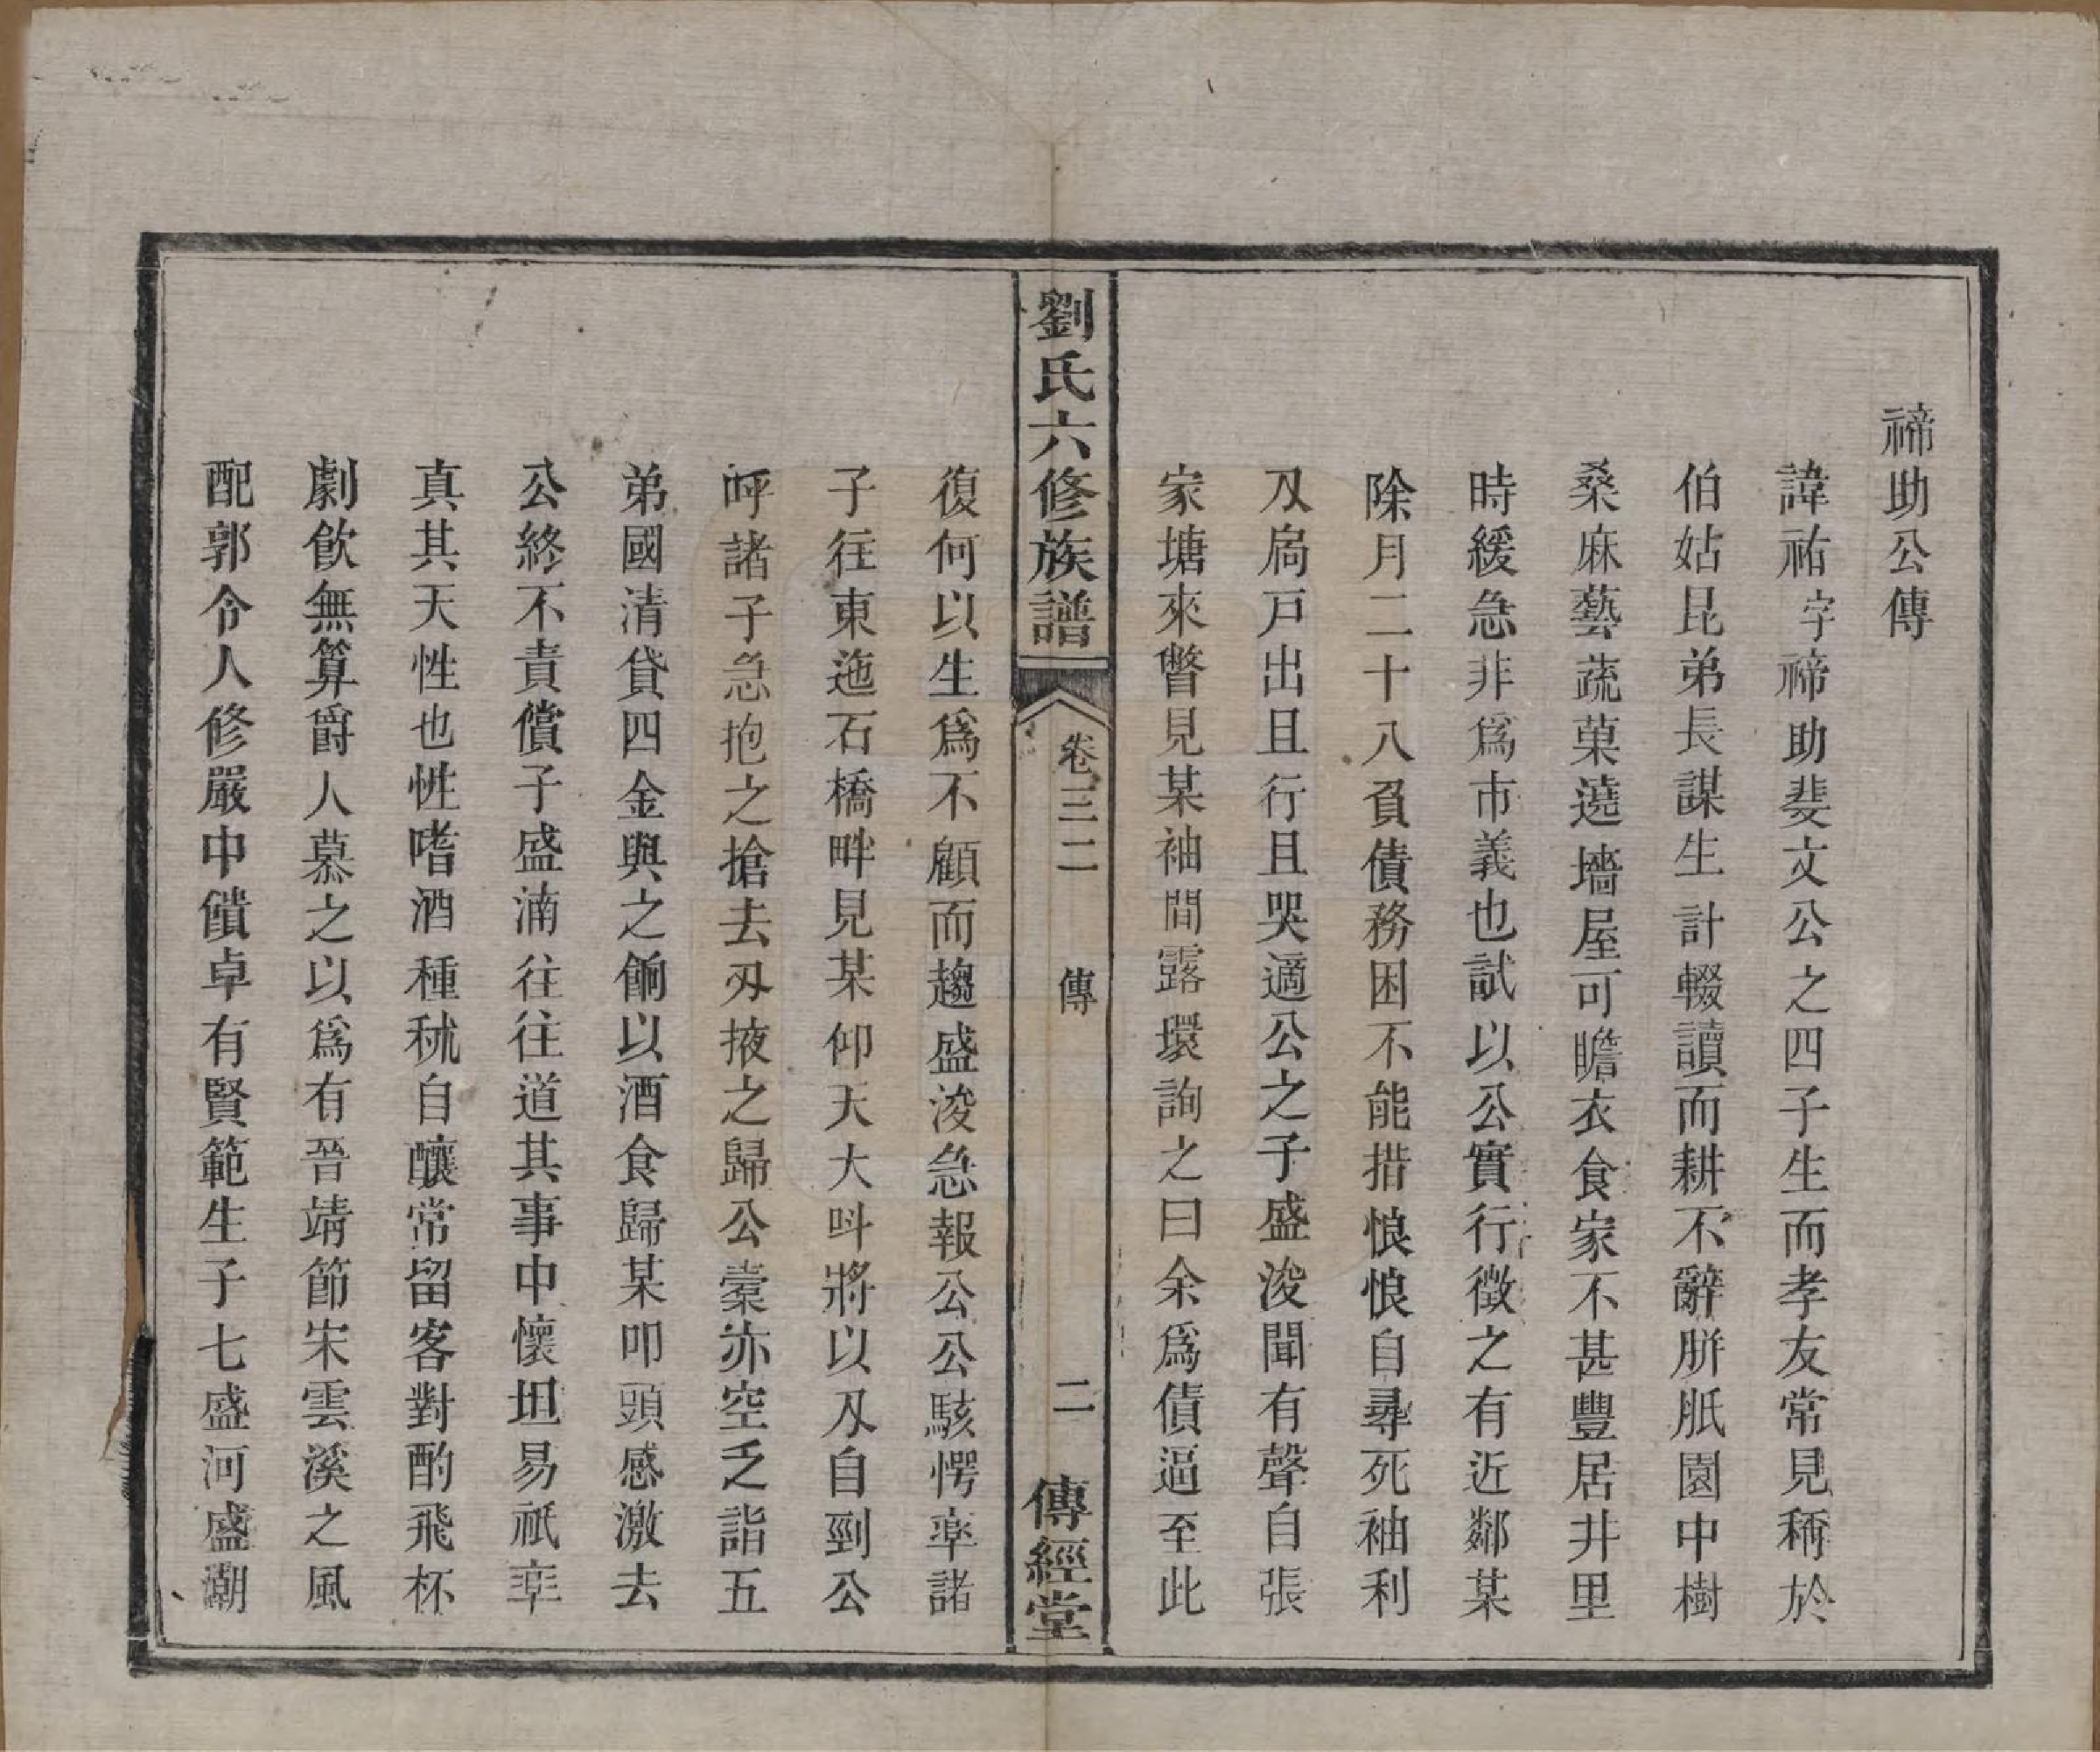 禘助公傳
諱祐字禘助斐文公之四子生而孝友常見稱於
伯姑昆弟長謀生計輟讀而耕不辭胼胝園中樹
桑麻藝蔬菓遶墻屋可瞻衣食家不甚豐居井里
時緩急非爲市義也試以公實行徵之有近鄰某
除月二十八負債務困不能措悢悢自尋死袖利
刄扃戸出且行且哭適公之子盛浚聞有聲自張
家塘來瞥見某袖間露環詢之曰余爲債逼至此
劉氏六修族譜
卷三二
傳
二
傳經堂
復何以生爲不顧而趨盛浚急報公公駭愕率諸
子往東迤石橋畔見某仰天大呌將以刄自剄公
呼諸子急抱之搶去刄掖之歸公橐亦空乏詣五
弟國清貸四金與之餉以酒食歸某叩頭感激去
公終不責償子盛湳往往道其事中懷坦易祇率
真其天性也性嗜酒種秫自釀常留客對酌飛杯
劇飲無算爵人慕之以爲有晉靖節宋雲溪之風
配郭令人修嚴中饋卓有賢範生子七盛河盛潮